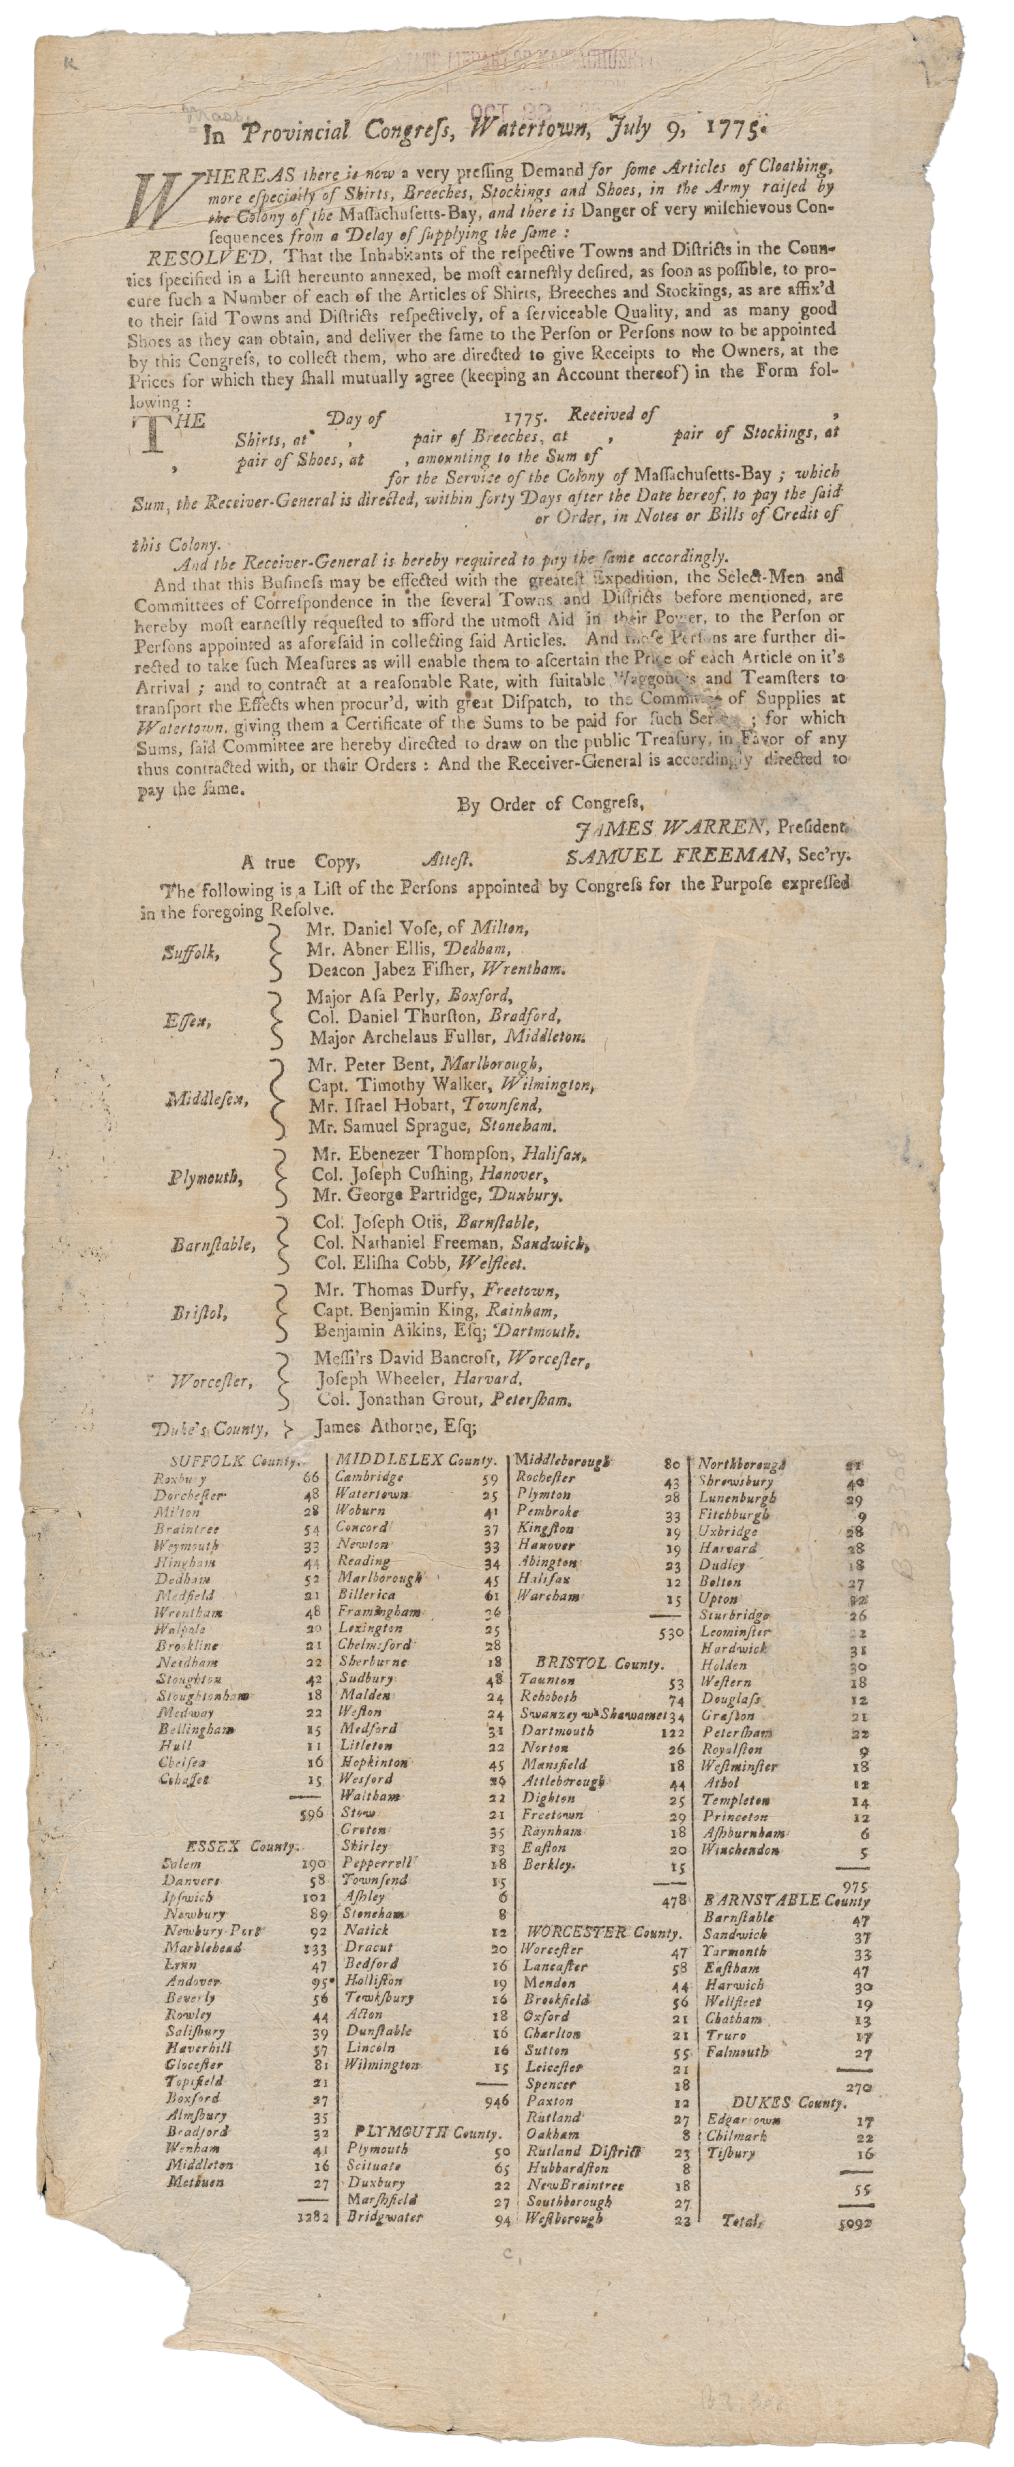 OCT 28
Mass.
In Provincial Congreſs, Watertown, July 9, 1775.
WHEREAS there is now a very preſſing Demand for ſome Articles of Cloathing,
more eſpecially of Shirts, Breeches, Stockings and Shoes, in the Army raiſed by
the Colony of the Maſſachuſetts-Bay, and there is Danger of very miſchievous Con-
ſequences from a Delay of ſupplying the ſame:
RESOLVED, That the Inhabitants of the reſpective Towns and Diſtricts in the Coun-
ties ſpecified in a Liſt hereunto annexed, be moſt earneſtly deſired, as ſoon as poſſible, to pro-
cure ſuch a Number of each of the Articles of Shirts, Breeches and Stockings, as are affix'd
to their ſaid Towns and Diſtricts reſpectively, of a ſerviceable Quality, and as many good
Shoes as they can obtain, and deliver the ſame to the Perſon or Perſons now to be appointed
by this Congreſs, to collect them, who are directed to give Receipts to the Owners, at the
Prices for which they ſhall mutually agree (keeping an Account thereof) in the Form fol-
lowing:
THE Day of 1775. Received of ,
Shirts, at , pair of Breeches, at , pair of Stockings, at
, pair of Shoes, at , amounting to the Sum of
for the Service of the Colony of Maſſachuſetts-Bay; which
Sum, the Receiver-General is directed, within forty Days after the Date hereof, to pay the ſaid
or Order, in Notes or Bills of Credit of
this Colony.
And the Receiver-General is hereby required to pay the ſame accordingly.
And that this Buſineſs may be effected with the greateſt Expedition, the Select-Men and
Committees of Correſpondence in the ſeveral Towns and Diſtricts before mentioned, are
hereby moſt earneſtly requeſted to afford the utmoſt Aid in their Power, to the Perſon or
Perſons appointed as aforeſaid in collecting ſaid Articles. And thoſe Perſons are further di-
rected to take ſuch Meaſures as will enable them to aſcertain the Price of each Article on it's
Arrival; and to contract at a reaſonable Rate, with ſuitable Waggoners and Teamſters to
tranſport the Effects when procur'd, with great Diſpatch, to the Committee of Supplies at
Watertown, giving them a Certificate of the Sums to be paid for ſuch ; for which
Sums, ſaid Committee are hereby directed to draw on the public Treaſury, in Favor of any
thus contracted with, or their Orders: And the Receiver-General is accordingly directed to
pay the ſame.
By Order of Congreſs,
JAMES WARREN, Preſident.
A true Copy, Atteſt. SAMUEL FREEMAN, Sec'ry.
The following is a Liſt of the Perſons appointed by Congreſs for the Purpoſe expreſſed
in the foregoing Reſolve.
Suffolk,
Mr. Daniel Voſe, of Milton,
Mr. Abner Ellis, Dedham,
Deacon Jabez Fiſher, Wrentham.
Eſſex,
Major Aſa Perly, Boxford,
Col. Daniel Thurſton, Bradford,
Major Archelaus Fuller, Middleton.
Middleſex,
Mr. Peter Bent, Marlborough,
Capt. Timothy Walker, Wilmington,
Mr. Iſrael Hobart, Townſend,
Mr. Samuel Sprague, Stoneham.
Plymouth,
Mr. Ebenezer Thompſon, Halifax,
Col. Joſeph Cuſhing, Hanover,
Mr. George Partridge, Duxbury.
Barnſtable,
Col. Joſeph Otis, Barnſtable,
Col. Nathaniel Freeman, Sandwich,
Col. Eliſha Cobb, Welfleet.
Briſtol,
Mr. Thomas Durfy, Freetown,
Capt. Benjamin King, Rainham,
Benjamin Aikins, Eſq; Dartmouth.
Worceſter,
Meſſi'rs David Bancroft, Worceſter,
Joſeph Wheeler, Harvard,
Col. Jonathan Grout, Peterſham.
Duke's County, James Athorne, Eſq;
SUFFOLK County.
Roxbury 66
Dorcheſter 48
Milton 28
Braintree 54
Weymouth 33
Hingham 44
Dedham 52
Medfield 21
Wrentham 48
Walpole 20
Brookline 21
Needham 22
Stoughton 42
Stoughtonham 18
Medway 22
Bellingham 15
Hull 11
Chelſea 16
Cohaſſet 15
596
ESSEX County.
Salem 190
Danvers 58
Ipſwich 102
Newbury 89
Newbury-Port 92
Marblehead 133
Lynn 47
Andover 95
Beverly 56
Rowley 44
Saliſbury 39
Haverhill 57
Gloceſter 81
Topſfield 21
Boxford 27
Almſbury 35
Bradford 32
Wenham 41
Middleton 16
Methuen 27
1282
MIDDLELEX County.
Cambridge 59
Watertown 25
Woburn 41
Concord 37
Newton 33
Reading 34
Marlborough 45
Billerica 61
Framingham 36
Lexington 25
Chelmsford 28
Sherburne 18
Sudbury 48
Malden 24
Weſton 24
Medford 31
Littleton 22
Hopkinton 45
Weſtford 26
Waltham 22
Stow 21
Groton 35
Shirley 13
Pepperrell 18
Townſend 15
Aſhley 6
Stoneham 8
Natick 12
Dracut 20
Bedford 16
Holliſton 19
Tewkſbury 16
Acton 18
Dunſtable 16
Lincoln 16
Wilmington 15
946
PLYMOUTH County.
Plymouth 50
Scituate 65
Duxbury 22
Marſhfield 27
Bridgwater 94
Middleborough 80
Rocheſter 43
Plymton 28
Pembroke 33
Kingſton 19
Hanover 19
Abington 23
Halifax 12
Wareham 15
530
BRISTOL County.
Taunton 53
Rehoboth 74
Swanzey wh Shawamet 34
Dartmouth 122
Norton 26
Mansfield 18
Attleborough 44
Dighton 25
Freetown 29
Raynham 18
Eaſton 20
Berkley. 15
478
WORCESTER County.
Worceſter 47
Lancaſter 58
Mendon 44
Brookfield 56
Oxford 21
Charlton 21
Sutton 55
Leiceſter 21
Spencer 18
Paxton 12
Rutland 27
Oakham 8
Rutland Diſtrict 23
Hubbardſton 8
New Braintree 18
Southborough 27
Weſtborough 23
Northborough 21
Shrewſbury 40
Lunenburgh 29
Fitchburgh 9
Uxbridge 28
Harvard 28
Dudley 18
Bolton 27
Upton
Sturbridge 26
Leominſter
Hardwick 31
Holden 30
Weſtern 18
Douglaſs 12
Grafton 21
Peterſham 22
Royalſton 9
Weſtminſter 18
Athol 12
Templeton 14
Princeton 12
Aſhburnham 6
Winchendon 5
975
BARNSTABLE County
Barnſtable 47
Sandwich 37
Yarmouth 33
Eaſtham 47
Harwich 30
Wellfleet 19
Chatham 13
Truro 17
Falmouth 27
270
DUKES County.
Edgartown 17
Chilmark 22
Tiſbury 16
55
Total, 5092